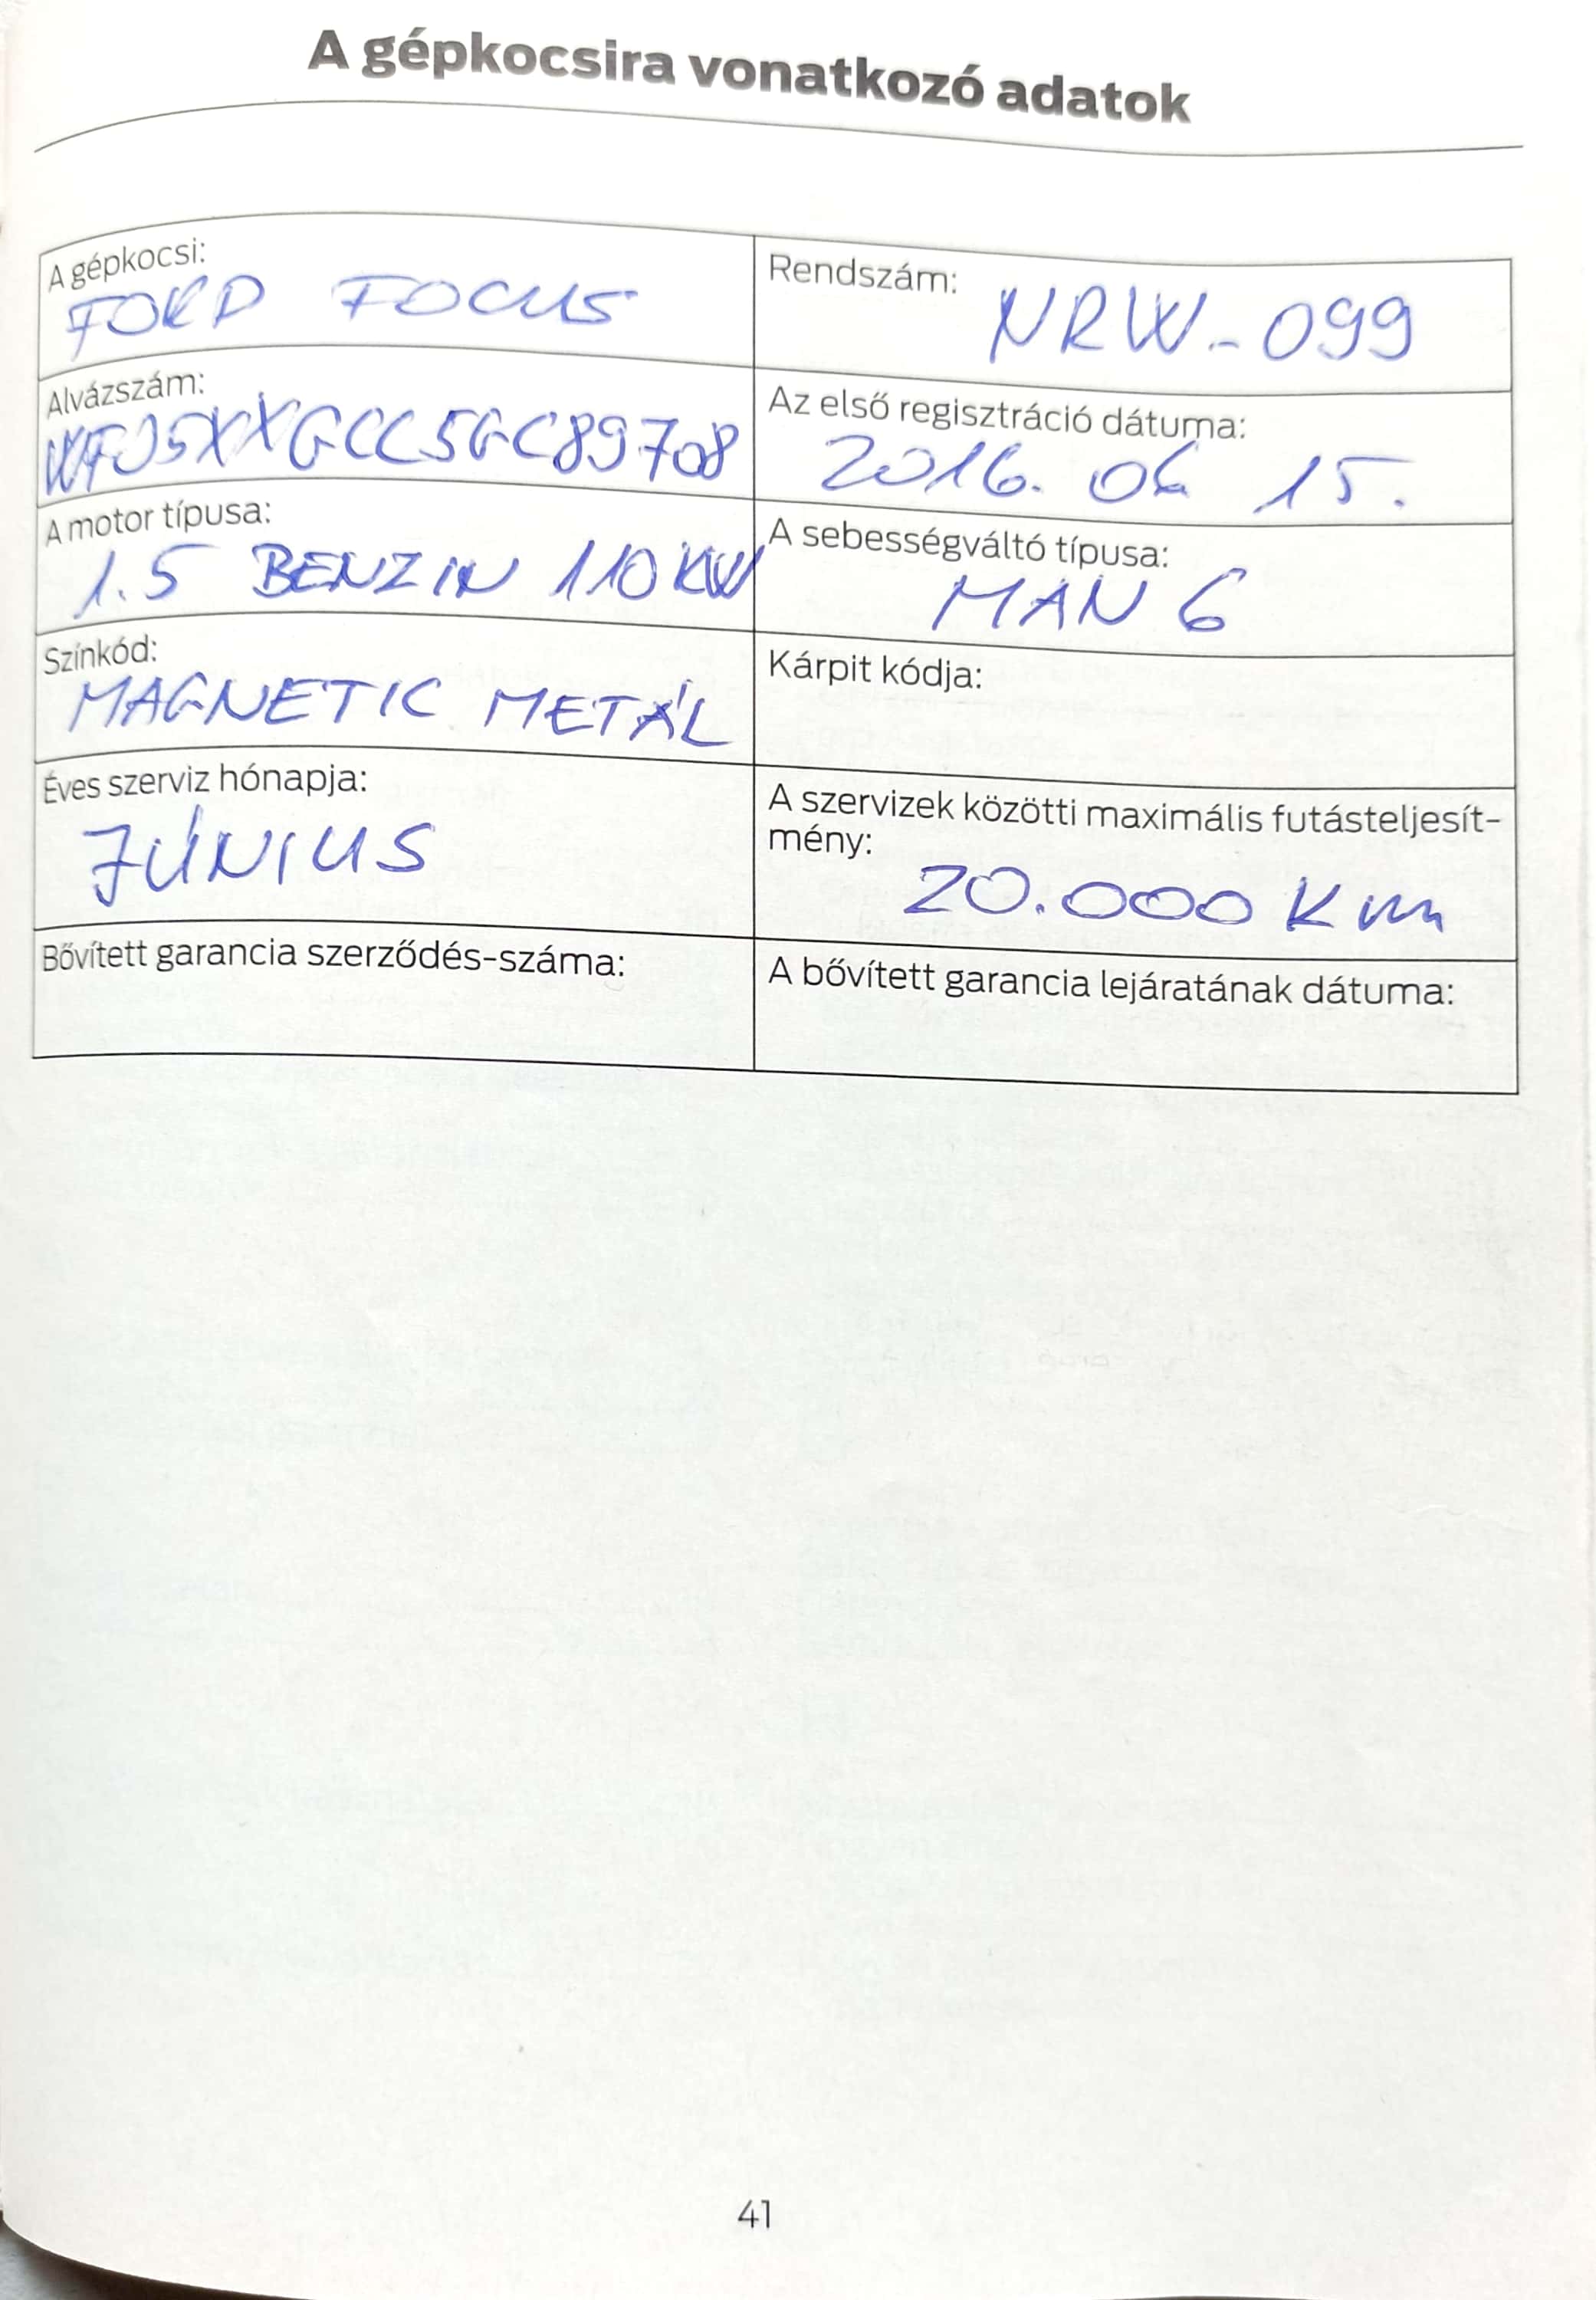 A gépkocsira vonatkozó adatok
A gépkocsi:
FORD FOCUS
Rendszám:
NRW-099
Alvázszám:
WF05XXGCC5GC89708
Az első regisztráció dátuma:
2016. 06 15.
A motor típusa:
1.5 BENZIN 110 KW
A sebességváltó típusa:
MAN 6
Színkód:
MAGNETIC METÁL
Kárpit kódja:
Éves szerviz hónapja:
JÚNIUS
A szervizek közötti maximális futásteljesít-
mény:
20.000 Km
Bővített garancia szerződés-száma:
A bővített garancia lejáratának dátuma:
41